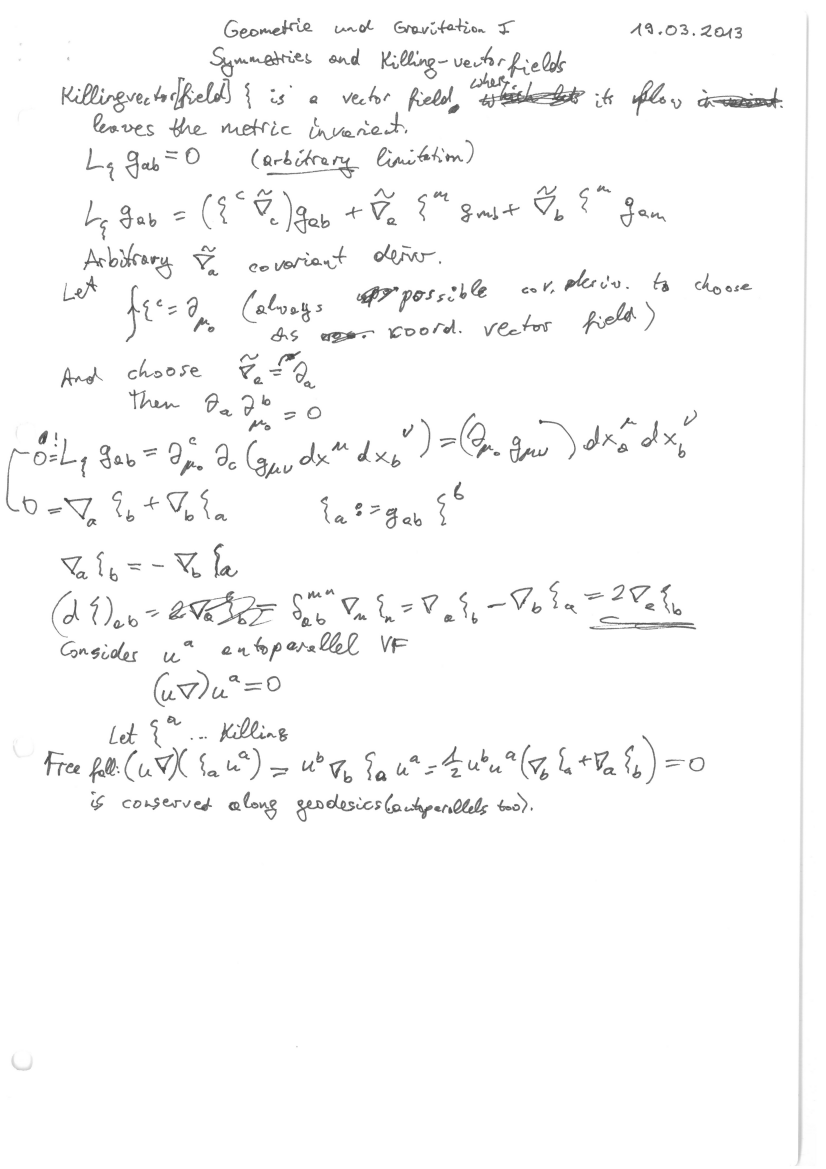 Geometrie und Gravitation I 19.03.2013
Symmetries and Killing-vector fields
Killingvector[field] ξ is a vector field, where its flow
leaves the metric invarient.
L_ξ g_ab = 0 (arbitrary limitation)
L_ξ g_ab = (ξ^c ∇̃_c) g_ab + ∇̃_a ξ^m g_mb + ∇̃_b ξ^m g_am
Arbitrary ∇̃_a covariant deriv.
Let ξ^c = ∂_μ₀ (always possible cov. deriv. to choose
as koord. vector field)
And choose ∇̃_a = ∂_a
then ∂_a ∂^b_μ₀ = 0
0 =! L_ξ g_ab = ∂^c_μ₀ ∂_c (g_μν dx^μ dx_b^ν) = (∂_μ₀ g_μν) dx_a^μ dx_b^ν
0 = ∇_a ξ_b + ∇_b ξ_a ξ_a := g_ab ξ^b
∇_a ξ_b = - ∇_b ξ_a
(dξ)_ab = δ^mn_ab ∇_m ξ_n = ∇_a ξ_b - ∇_b ξ_a = 2∇_a ξ_b
Consider u^a autoparallel VF
(u∇)u^a = 0
Let ξ^a ... Killing
Free fall: (u∇)(ξ_a u^a) = u^b ∇_b ξ_a u^a = ½ u^b u^a (∇_b ξ_a + ∇_a ξ_b) = 0
is conserved along geodesics (autoparallels too).